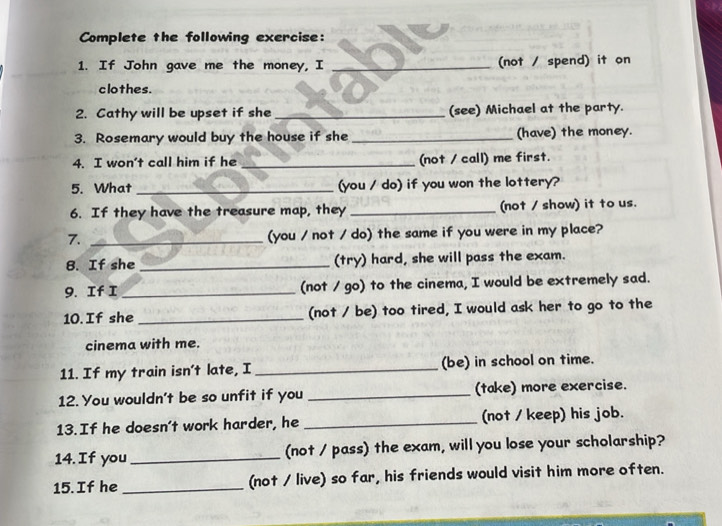 Complete the following exercise:
1. If John gave me the money, I ____________ (not / spend) it on
clothes.
2. Cathy will be upset if she ____________ (see) Michael at the party.
3. Rosemary would buy the house if she ____________ (have) the money.
4. I won't call him if he ____________ (not / call) me first.
5. What ____________ (you / do) if you won the lottery?
6. If they have the treasure map, they ____________ (not / show) it to us.
7. ____________ (you / not / do) the same if you were in my place?
8. If she ____________ (try) hard, she will pass the exam.
9. If I ____________ (not / go) to the cinema, I would be extremely sad.
10. If she ____________ (not / be) too tired, I would ask her to go to the
cinema with me.
11. If my train isn't late, I ____________ (be) in school on time.
12. You wouldn't be so unfit if you ____________ (take) more exercise.
13. If he doesn't work harder, he ____________ (not / keep) his job.
14. If you ____________ (not / pass) the exam, will you lose your scholarship?
15. If he ____________ (not / live) so far, his friends would visit him more often.
ESLprintable